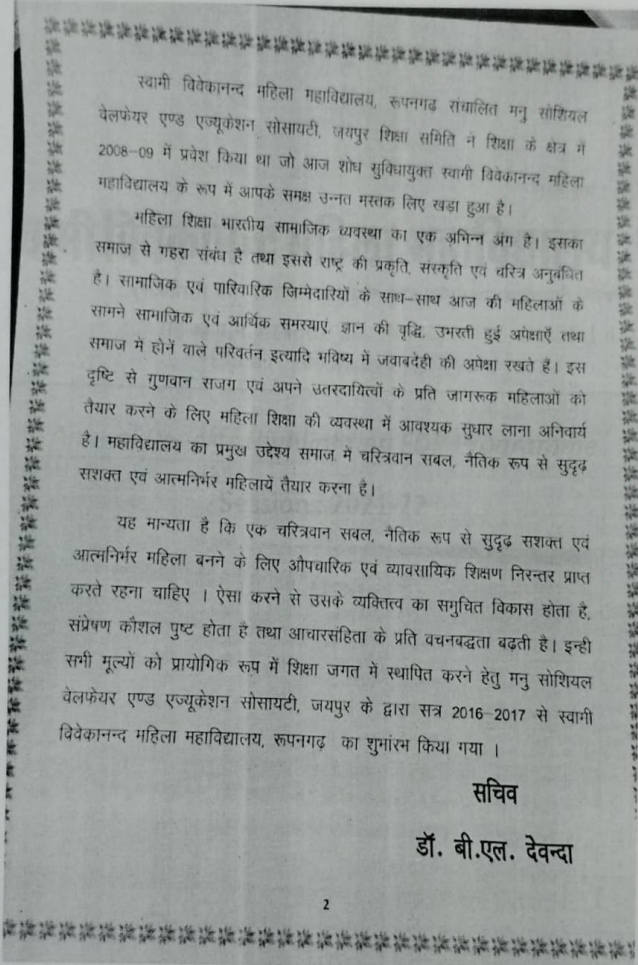 स्वामी विवेकानन्द महिला महाविद्यालय, रूपनगढ़ संचालित मनु सोशियल
वेलफेयर एण्ड एज्यूकेशन सोसायटी, जयपुर शिक्षा समिति ने शिक्षा के क्षेत्र में
2008-09 में प्रवेश किया था जो आज शोध सुविधायुक्त स्वामी विवेकानन्द महिला
महाविद्यालय के रूप में आपके समक्ष उन्नत मस्तक लिए खड़ा हुआ है।
महिला शिक्षा भारतीय सामाजिक व्यवस्था का एक अभिन्न अंग है। इसका
समाज से गहरा संबंध है तथा इससे राष्ट्र की प्रकृति, संस्कृति एवं चरित्र अनुबंधित
है। सामाजिक एवं पारिवारिक जिम्मेदारियों के साथ-साथ आज की महिलाओं के
सामने सामाजिक एवं आर्थिक समस्याएं, ज्ञान की वृद्धि, उभरती हुई अपेक्षाएँ तथा
समाज में होनें वाले परिवर्तन इत्यादि भविष्य में जवाबदेही की अपेक्षा रखते है। इस
दृष्टि से गुणवान राजग एवं अपने उतरदायित्वों के प्रति जागरूक महिलाओं को
तैयार करने के लिए महिला शिक्षा की व्यवस्था में आवश्यक सुधार लाना अनिवार्य
है। महाविद्यालय का प्रमुख उद्देश्य समाज मे चरित्रवान सबल, नैतिक रूप से सुदृढ़
सशक्त एवं आत्मनिर्भर महिलायें तैयार करना है।
यह मान्यता है कि एक चरित्रवान सबल, नैतिक रूप से सुदृढ़ सशक्त एवं
आत्मनिर्भर महिला बनने के लिए औपचारिक एवं व्यावसायिक शिक्षण निरन्तर प्राप्त
करते रहना चाहिए । ऐसा करने से उसके व्यक्तित्व का समुचित विकास होता है,
संप्रेषण कौशल पुष्ट होता है तथा आचारसंहिता के प्रति वचनबद्धता बढ़ती है। इन्ही
सभी मूल्यों को प्रायोगिक रूप में शिक्षा जगत में स्थापित करने हेतु मनु सोशियल
वेलफेयर एण्ड एज्यूकेशन सोसायटी, जयपुर के द्वारा सत्र 2016-2017 से स्वामी
विवेकानन्द महिला महाविद्यालय, रूपनगढ़ का शुभांरभ किया गया ।
सचिव
डॉ. बी.एल. देवन्दा
2